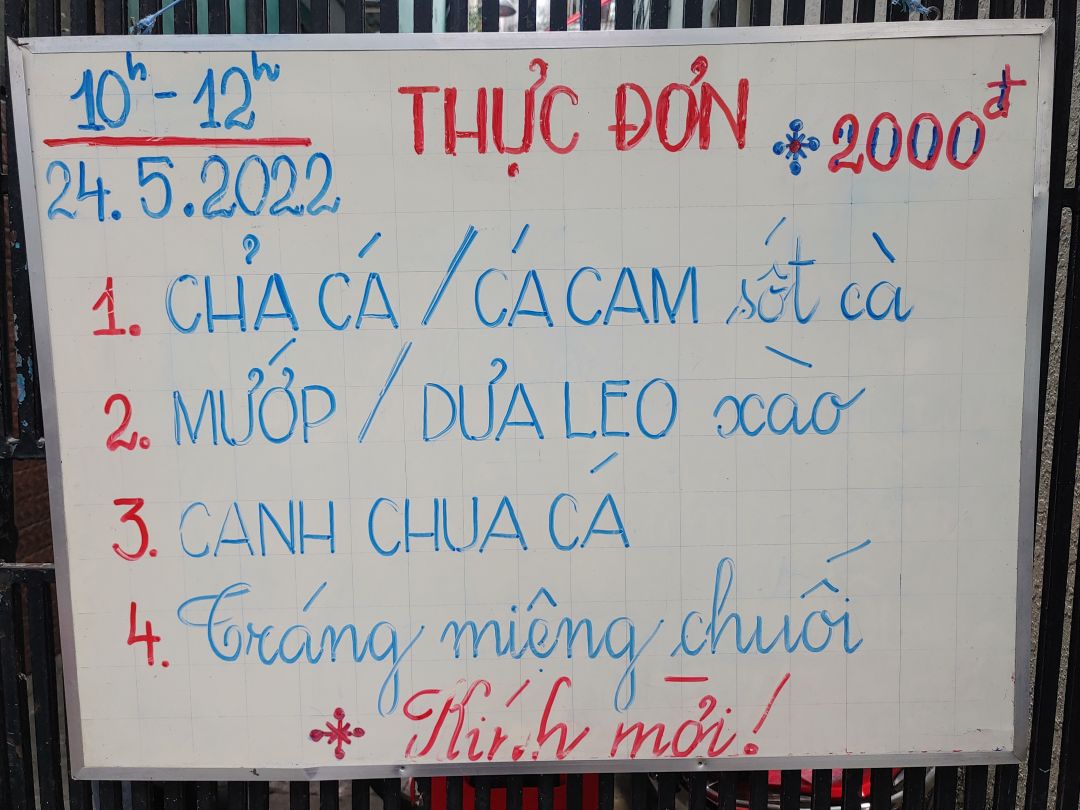 10h - 12h
THỰC ĐƠN
2000đ
24.5.2022
1. CHẢ CÁ / CÁ CAM sốt cà
2. MƯỚP / DƯA LEO xào
3. CANH CHUA CÁ
4. Tráng miệng chuối
Kính mời!